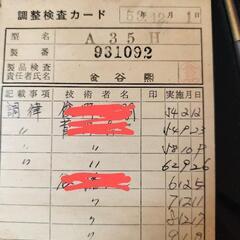 調整検査カード 53年12月1日
型名 A35H
製番 931092
製品検査責任者氏名 金谷熙
記載事項 技術者名 印 実施月日
調律 54212
〃 54923
〃 58108
〃 〃 62926
6125
〃 71211
〃 81217
〃 9118